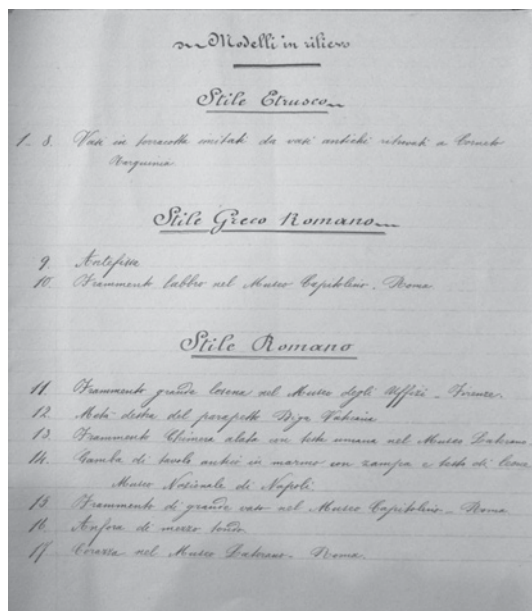 Modelli in rilievo
Stile Etrusco
1-8. Vasi in terracotta imitati da vasi antichi ritrovati a Corneto
Tarquinia.
Stile Greco Romano
9. Antefisse
10. Frammento labbro nel Museo Capitolino. Roma
Stile Romano
11. Frammento grande lesena nel Museo degli Uffizi - Firenze.
12. Metà destra del parapetto Biga Vaticana
13. Frammento Chimera alata con testa umana nel Museo Laterano.
14. Gamba di tavolo antico in marmo con zampa e testa di leone
Museo Nazionale di Napoli.
15. Frammento di grande vaso nel Museo Capitolino - Roma
16. Anfora di mezzo tondo.
17. Corazza nel Museo Laterano - Roma.